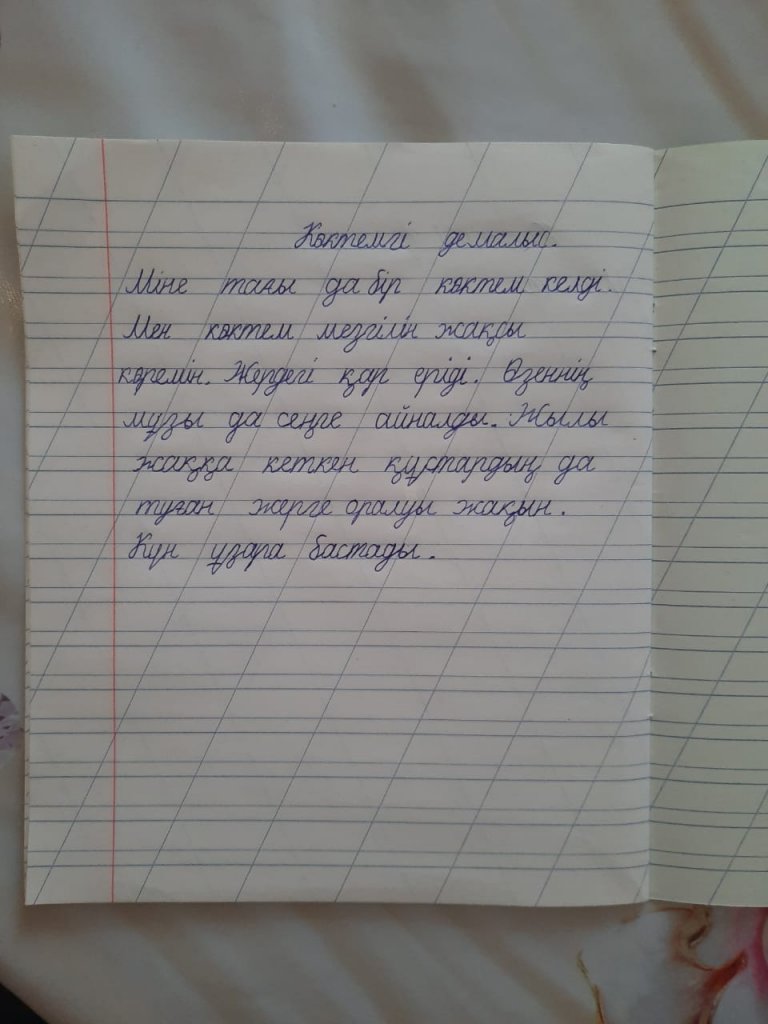 Көктемгі демалыс.
Міне тағы да бір көктем келді.
Мен көктем мезгілін жақсы
көремін. Жердегі қар еріді. Өзеннің
мұзы да сеңге айналды. Жылы
жаққа кеткен құстардың да
туған жерге оралуы жақын.
Күн ұзара бастады.